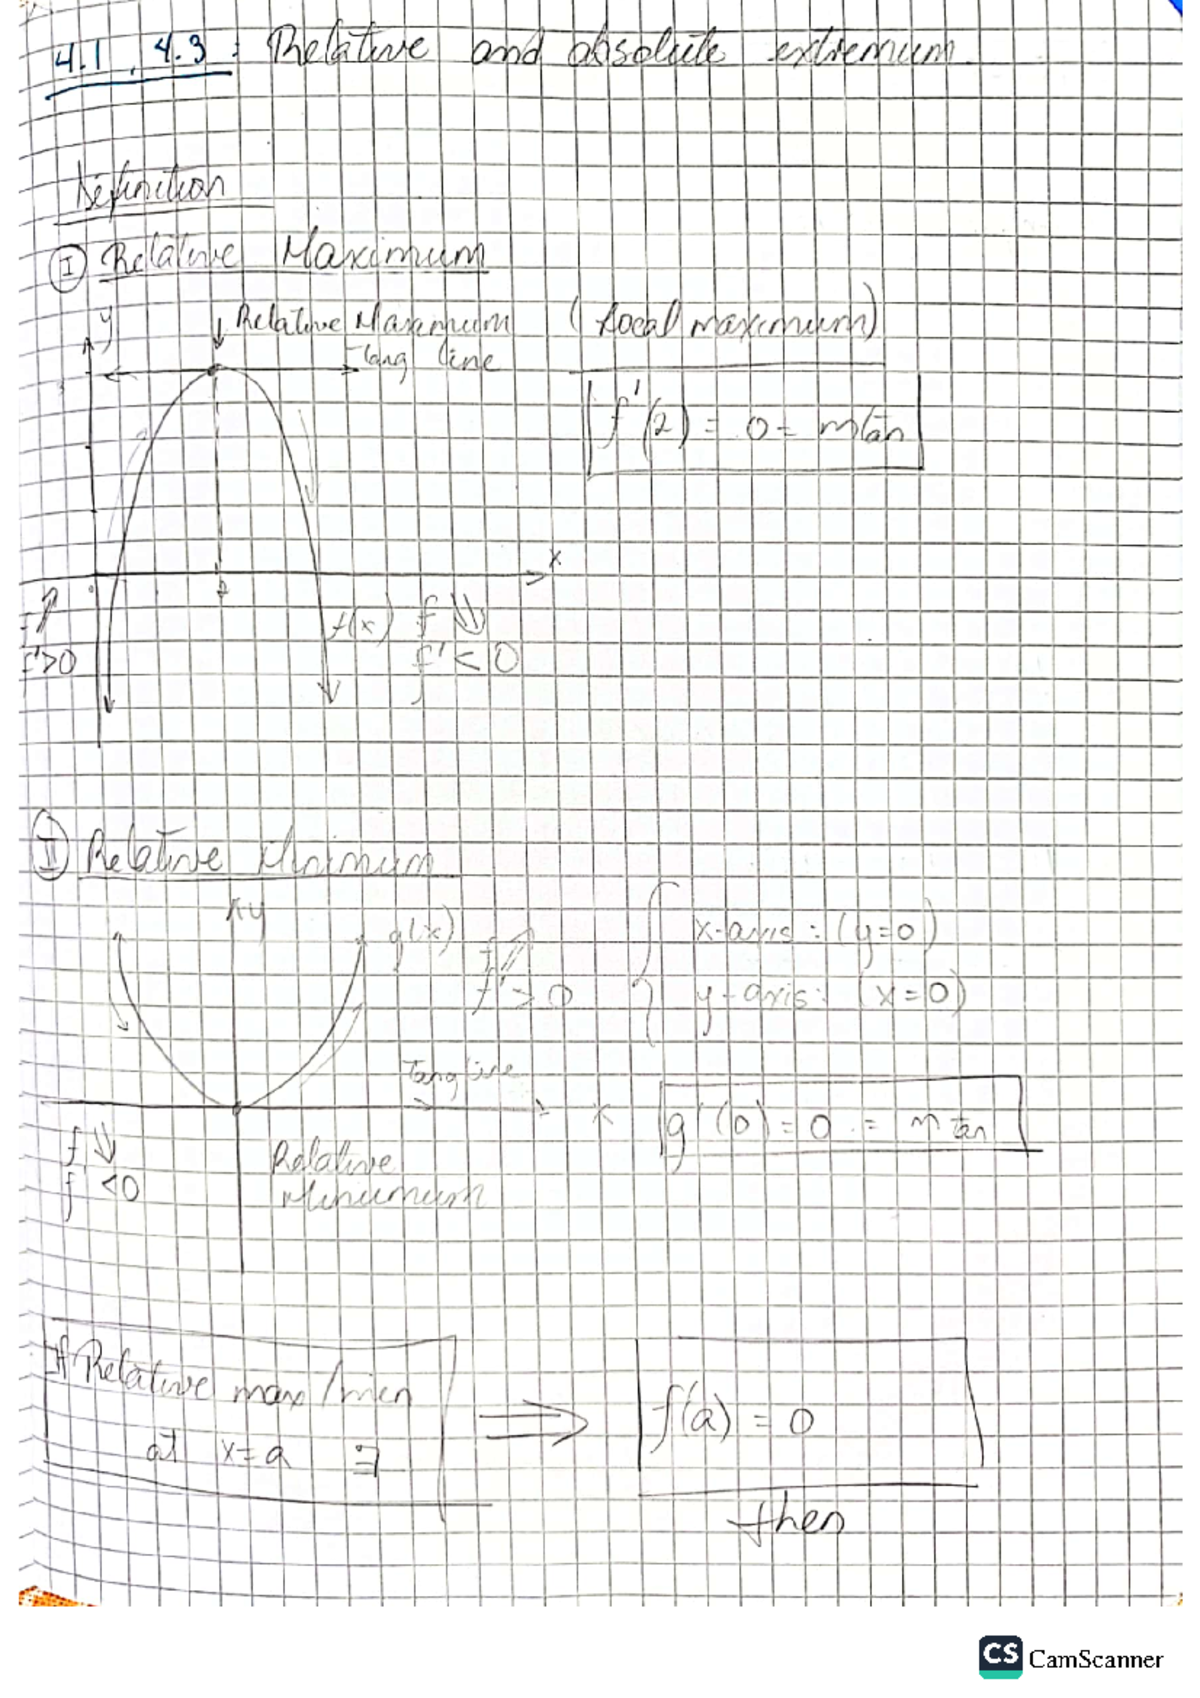 4.1, 4.3: Relative and absolute extremum
Definition
I Relative Maximum
y
Relative Maximum (Local maximum)
Tang line
f'(2) = 0 = mtan
x
2
f ↗
f'>0
f(x) f ↘
f' < 0
II Relative Minimum
y
g(x) f ↗
f' > 0
x-axis: (y=0)
y-axis: (x=0)
Tang line
x
g'(0) = 0 = m tan
f ↘
f <0
Relative
Minimum
If Relative max/min
at x=a ∃
⇒ f'(a) = 0
then
CS CamScanner